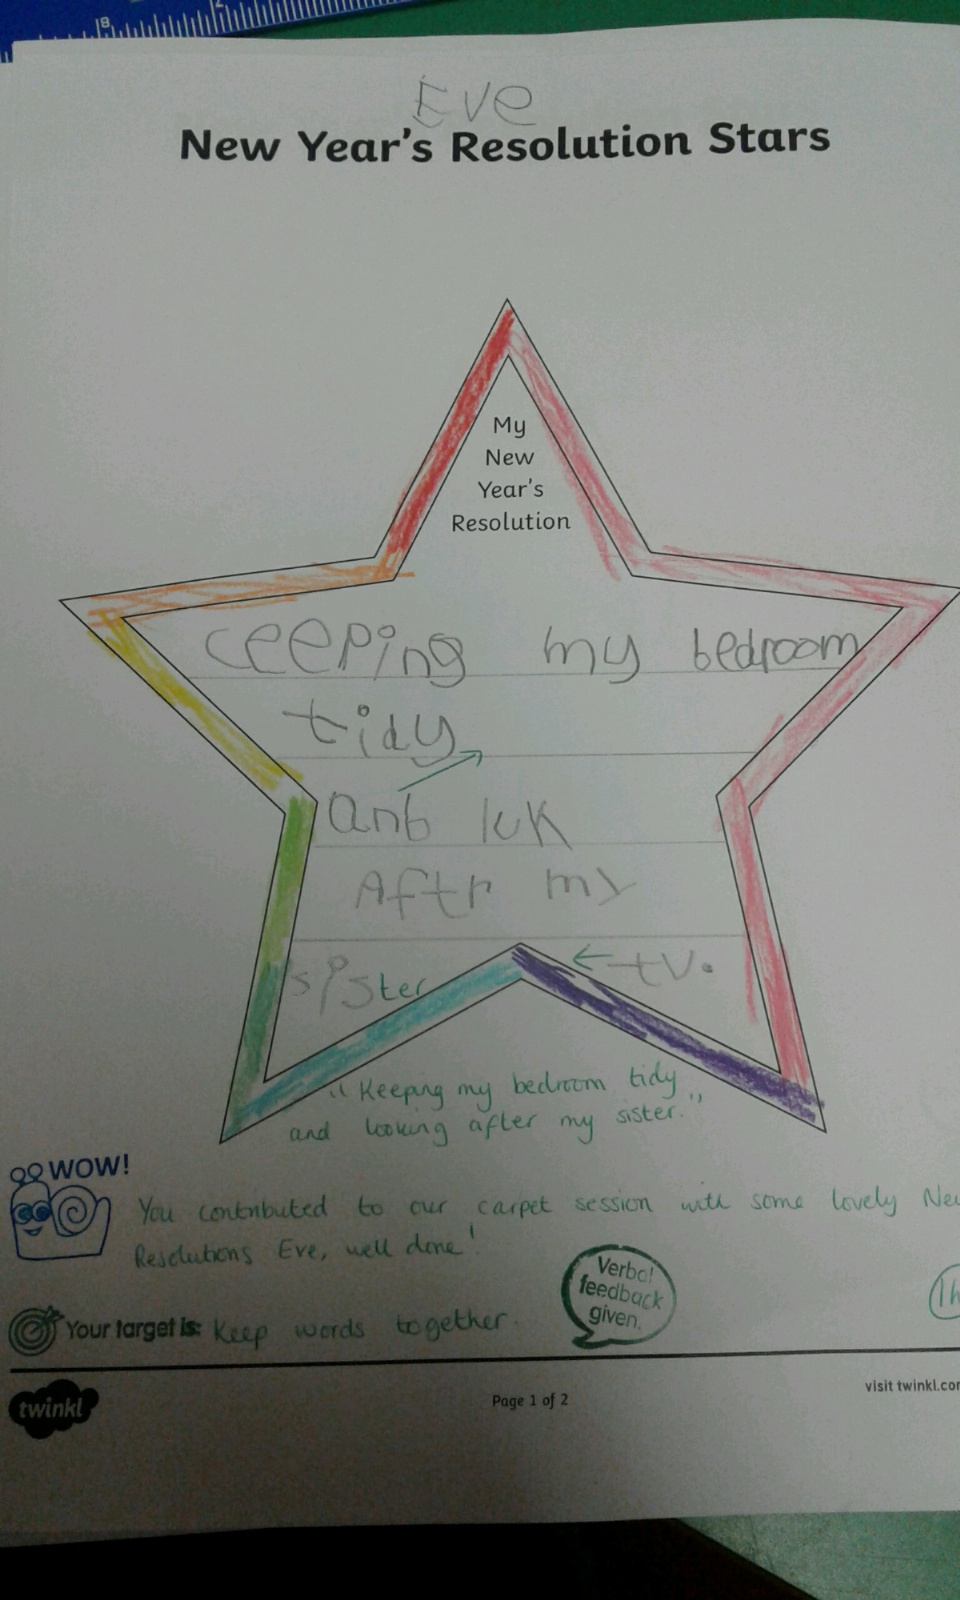 8
Eve
New Year's Resolution Stars
My
New
Year's
Resolution
ceeping my bedroom
tidy
anb luk
Aftr my
sister ← tv.
"Keeping my bedroom tidy
and looking after my sister."
WOW!
You contributed to our carpet session with some lovely Ne
Resolutions Eve, well done!
Verbal
feedback
given.
Your target is: Keep words together.
twinkl
Page 1 of 2
visit twinkl.co